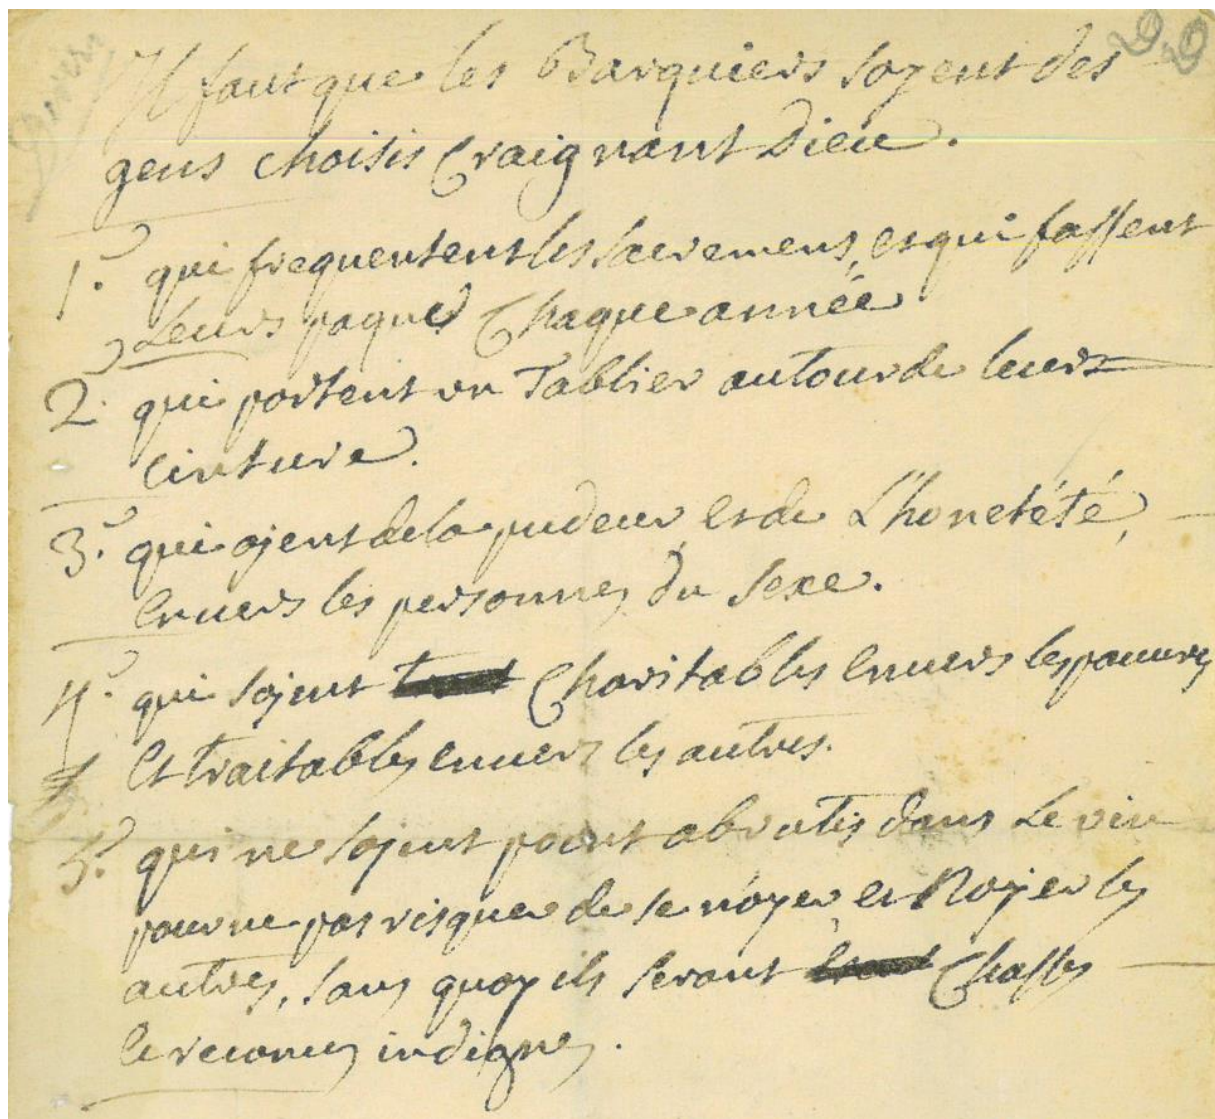 Il faut que les Barquiers soyent des
gens choisis Craignant Dieu.
1.° qui frequentent les sacremens, et qui fassent
Leurs paques Chaque année
2.° qui portent un Tablier autour de leurs
Cinture.
3.° qui ajent de la pudeur et de L'honetété,
Envers les personnes du sexe.
4.° qui sojent Charitables Envers les pauvres
Et traitables envers les autres.
5.° qui ne sojent point abrutis dans Le vin
pour ne pas risquer de se noyer et Noyer les
autres, sans quoy ils seront Chassés
et reconnus indignes.
D.D